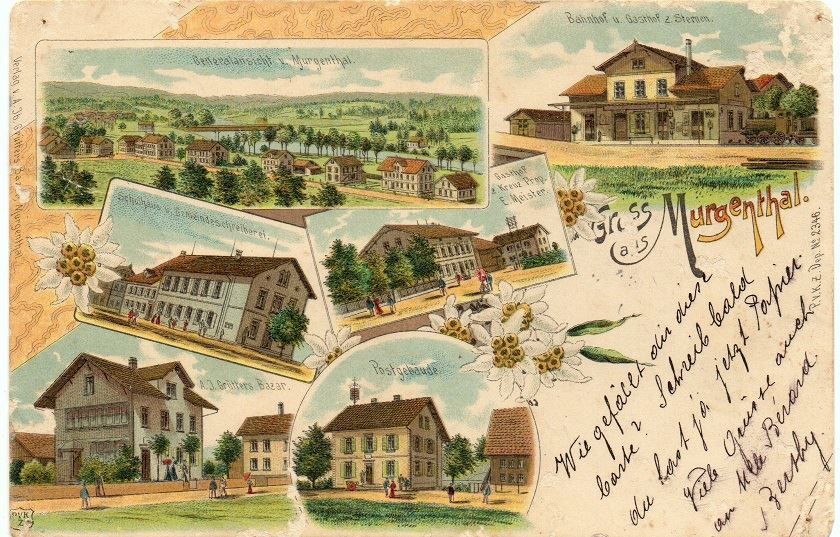 Generalansicht v. Murgenthal.
Bahnhof u. Gasthof z. Sternen.
Schulhaus u. Gemeindeschreiberei.
Gasthof
z. Kreuz Prop.
E. Meister.
A. J. Grütters Bazar.
Postgebäude.
Gruss
aus
Murgenthal.
P.V.K.Z. Dep. No 2346.
Verlag v. A. J.
PVK
Z
Wie gefällt dir diese
Carte? Schreib bald
du hast ja jetzt Papier.
Viele Grüsse auch
an Mlle Bérard
Berthy.